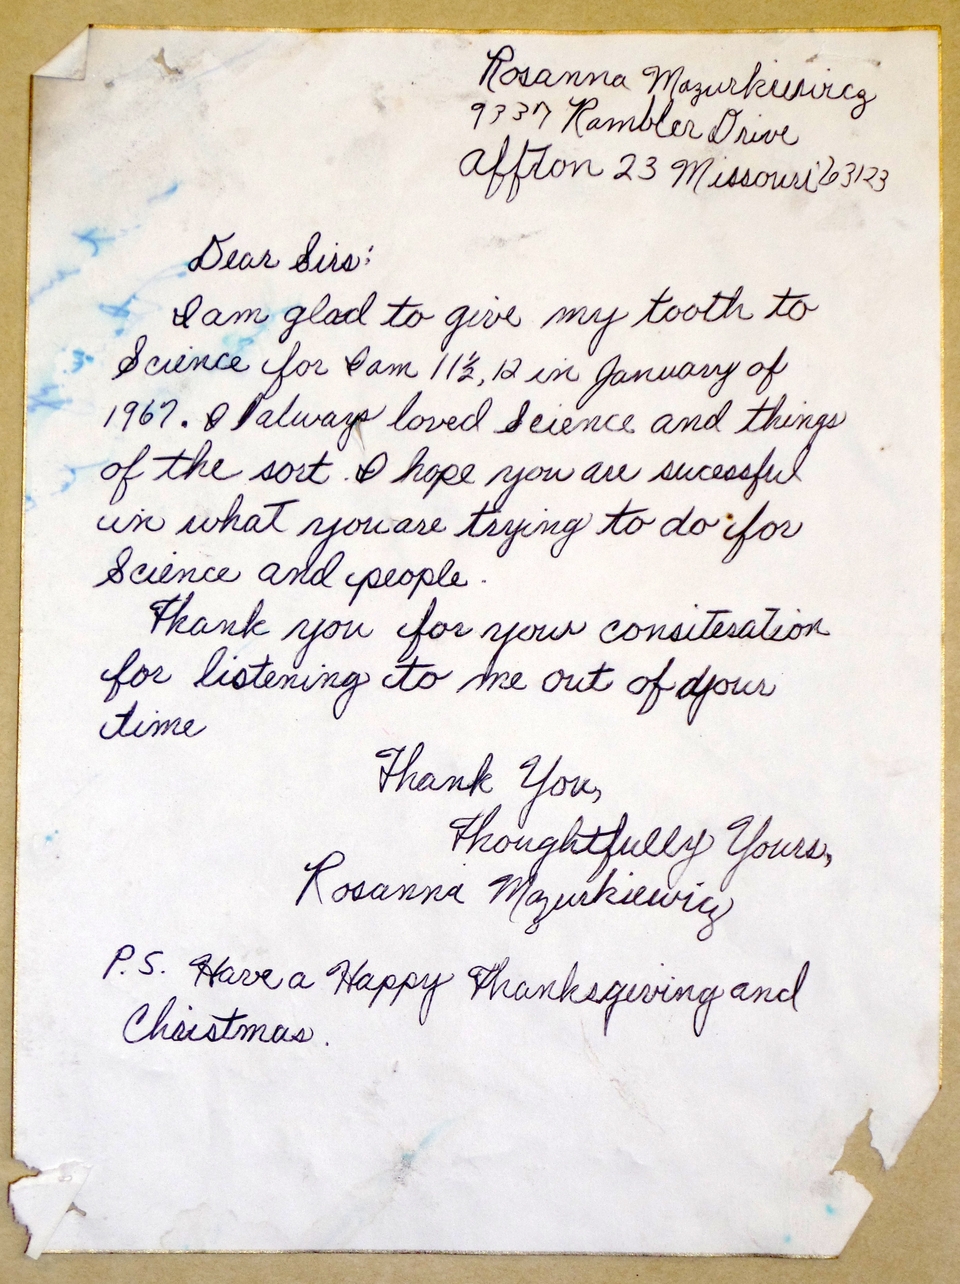 Rosanna Mazurkiewicz
9337 Rambler Drive
Affton 23 Missouri 63123
Dear Sirs:
I am glad to give my tooth to
Science for I am 11½, 12 in January of
1967. I always loved Science and things
of the sort. I hope you are sucessful
in what you are trying to do for
Science and people.
Thank you for your consiteration
for listening to me out of your
time
Thank You,
Thoughtfully Yours,
Rosanna Mazurkiewicz
P.S. Have a Happy Thanksgiving and
Christmas.